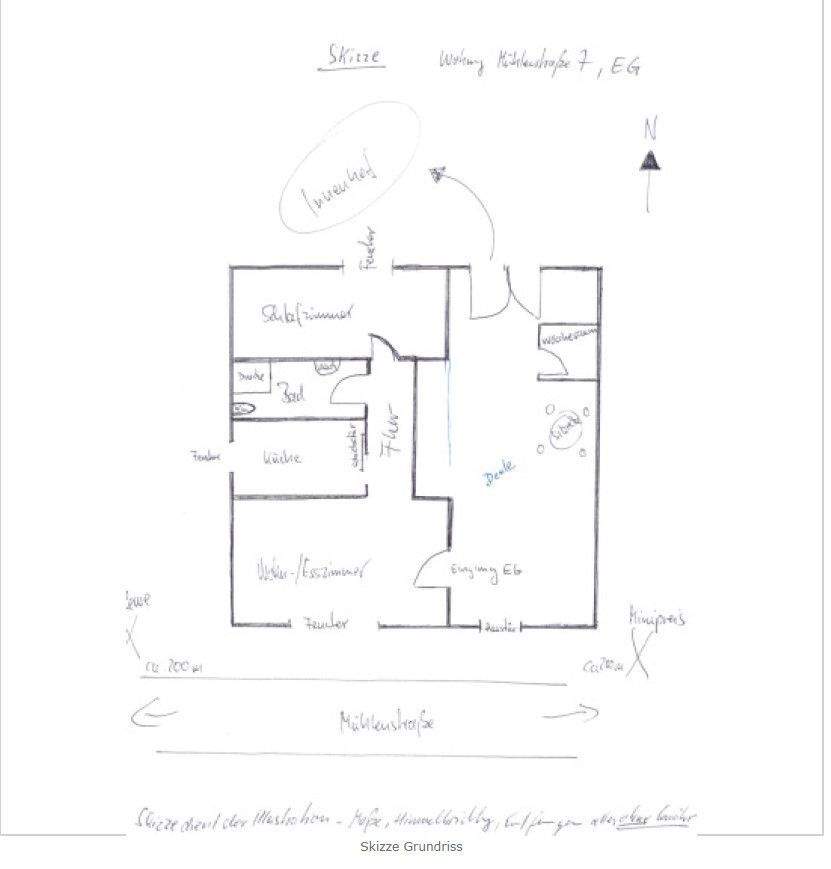 Skizze
Wohnung Mühlenstraße 7, EG
N
Innenhof
Fenster
Schlafzimmer
Wäscheraum
Dusche
Bad
WC
Flur
Schiebetür
Küche
Fenster
Sitzecke
Deele
Wohn-/Esszimmer
Eingang EG
Fenster
Haustür
Rewe
Minipreis
ca 200m
ca 200m
Mühlenstraße
Skizze dient der Illustration - Maße, Himmelsrichtg, Entfernungen alles ohne Gewähr
Skizze Grundriss